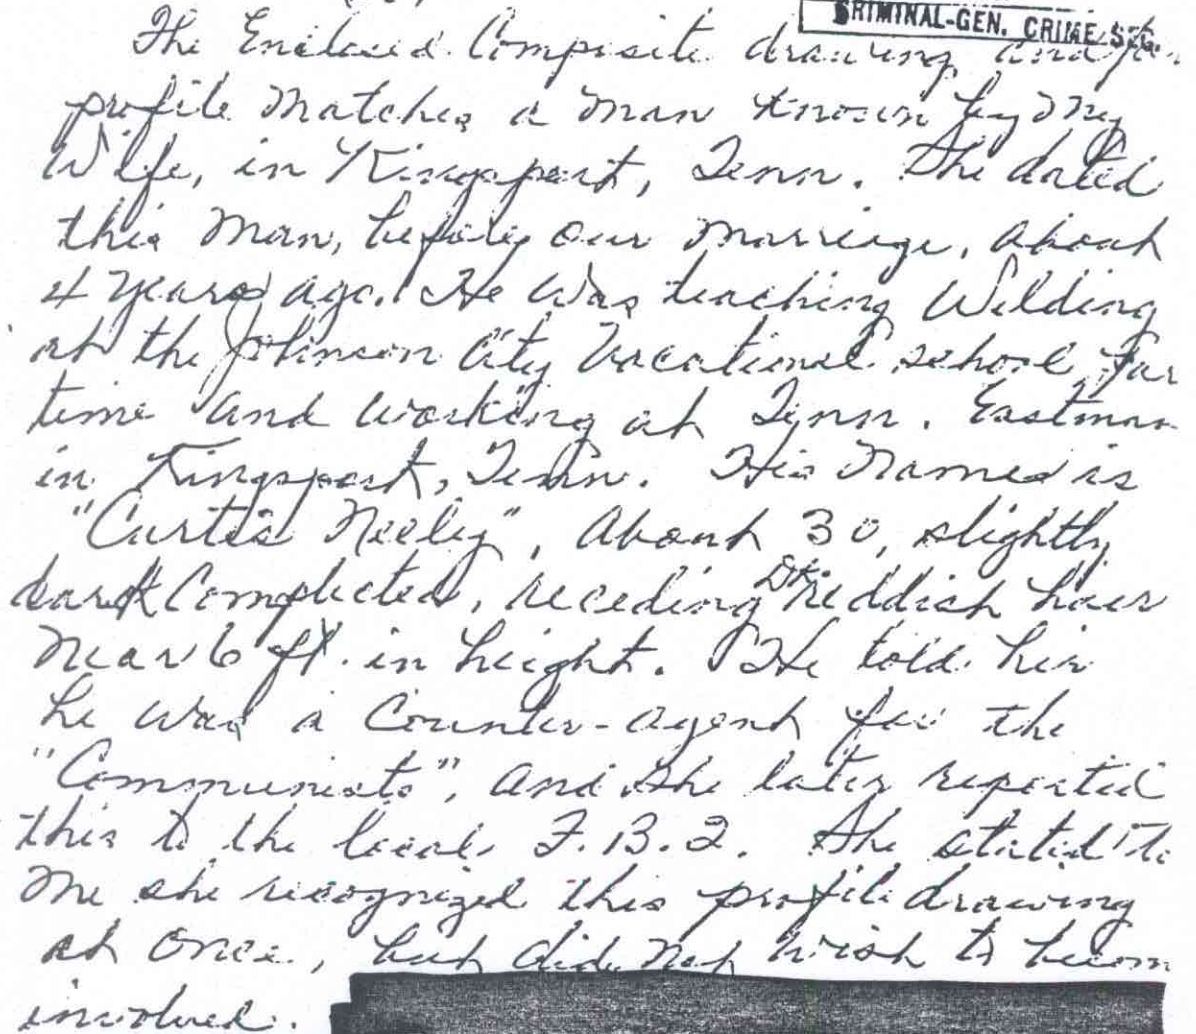 CRIMINAL-GEN. CRIME SEC.
The Enclosed Composite drawing and
profile Matches a man known by My
Wife, in Kingsport, Tenn. She dated
this Man, before our marriage, about
4 Years ago. He was teaching Welding
at the Johnson City Vocational school
time and working at Tenn. Eastman
in Kingsport, Tenn. His Name is
"Curtis Neely", About 30, slightly
dark Complected, receding Dk reddish hair
Near 6 ft. in height. He told her
he was a Counter-agent for the
"Communists", and she later reported
this to the local F.B.I. She stated to
Me she recognized this profile drawing
at once, but did not wish to becom
involved.